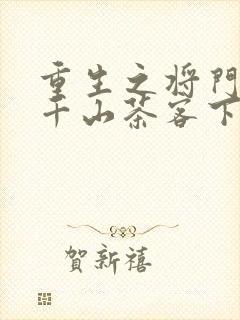 重生之将門
千山茶客下
賀新禧